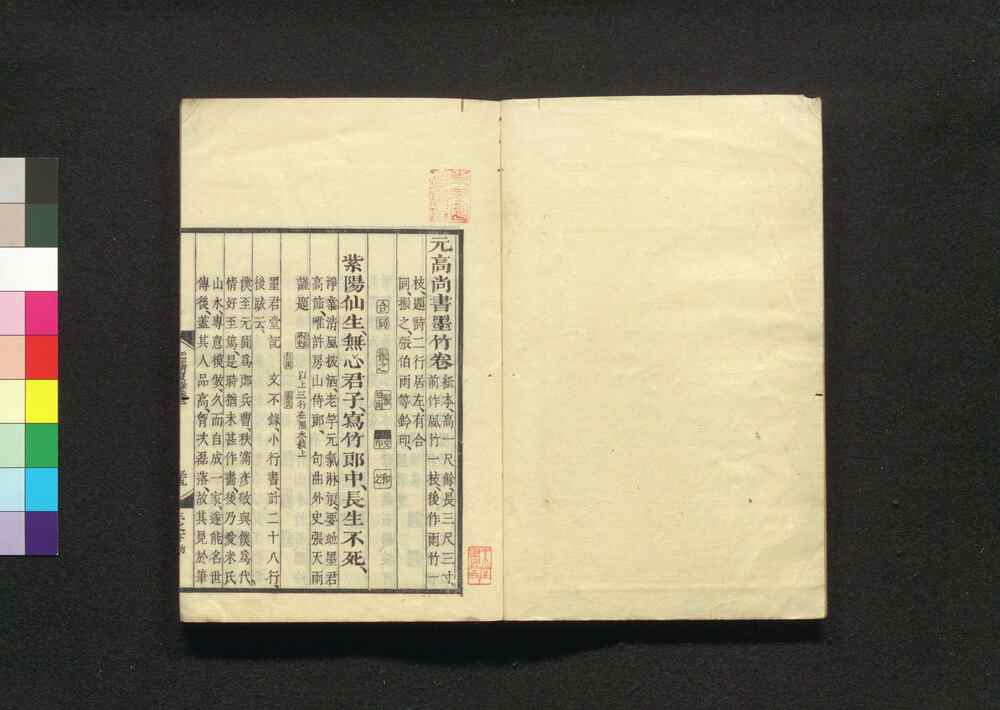 元高尚書墨竹卷 紙本、高一尺餘、長三尺三寸、
前作風竹一枝、後作雨竹一
枝、題詩二行居左、有合
同、振之、張伯雨等鈐印、
合同 振之
紫陽仙生、無心君子、寫竹郎中、長生不死、
淨業清風披惱、老竿元氣淋漓、要並墨君
高節、惟許房山侍郎、 句曲外史張天雨
謹題 以上三行在原本紙上
墨君堂記 文不錄、小行書、計二十八行、
後跋云、
僕至元間爲郎兵曹、秩滿、彥敬與僕爲代、
情好至篤、是時猶未甚作畫、後乃愛米氏
山水、專意模倣、久而自成一家、遂能名世
傳後、蓋其人品高、胷次磊落、故其見於筆